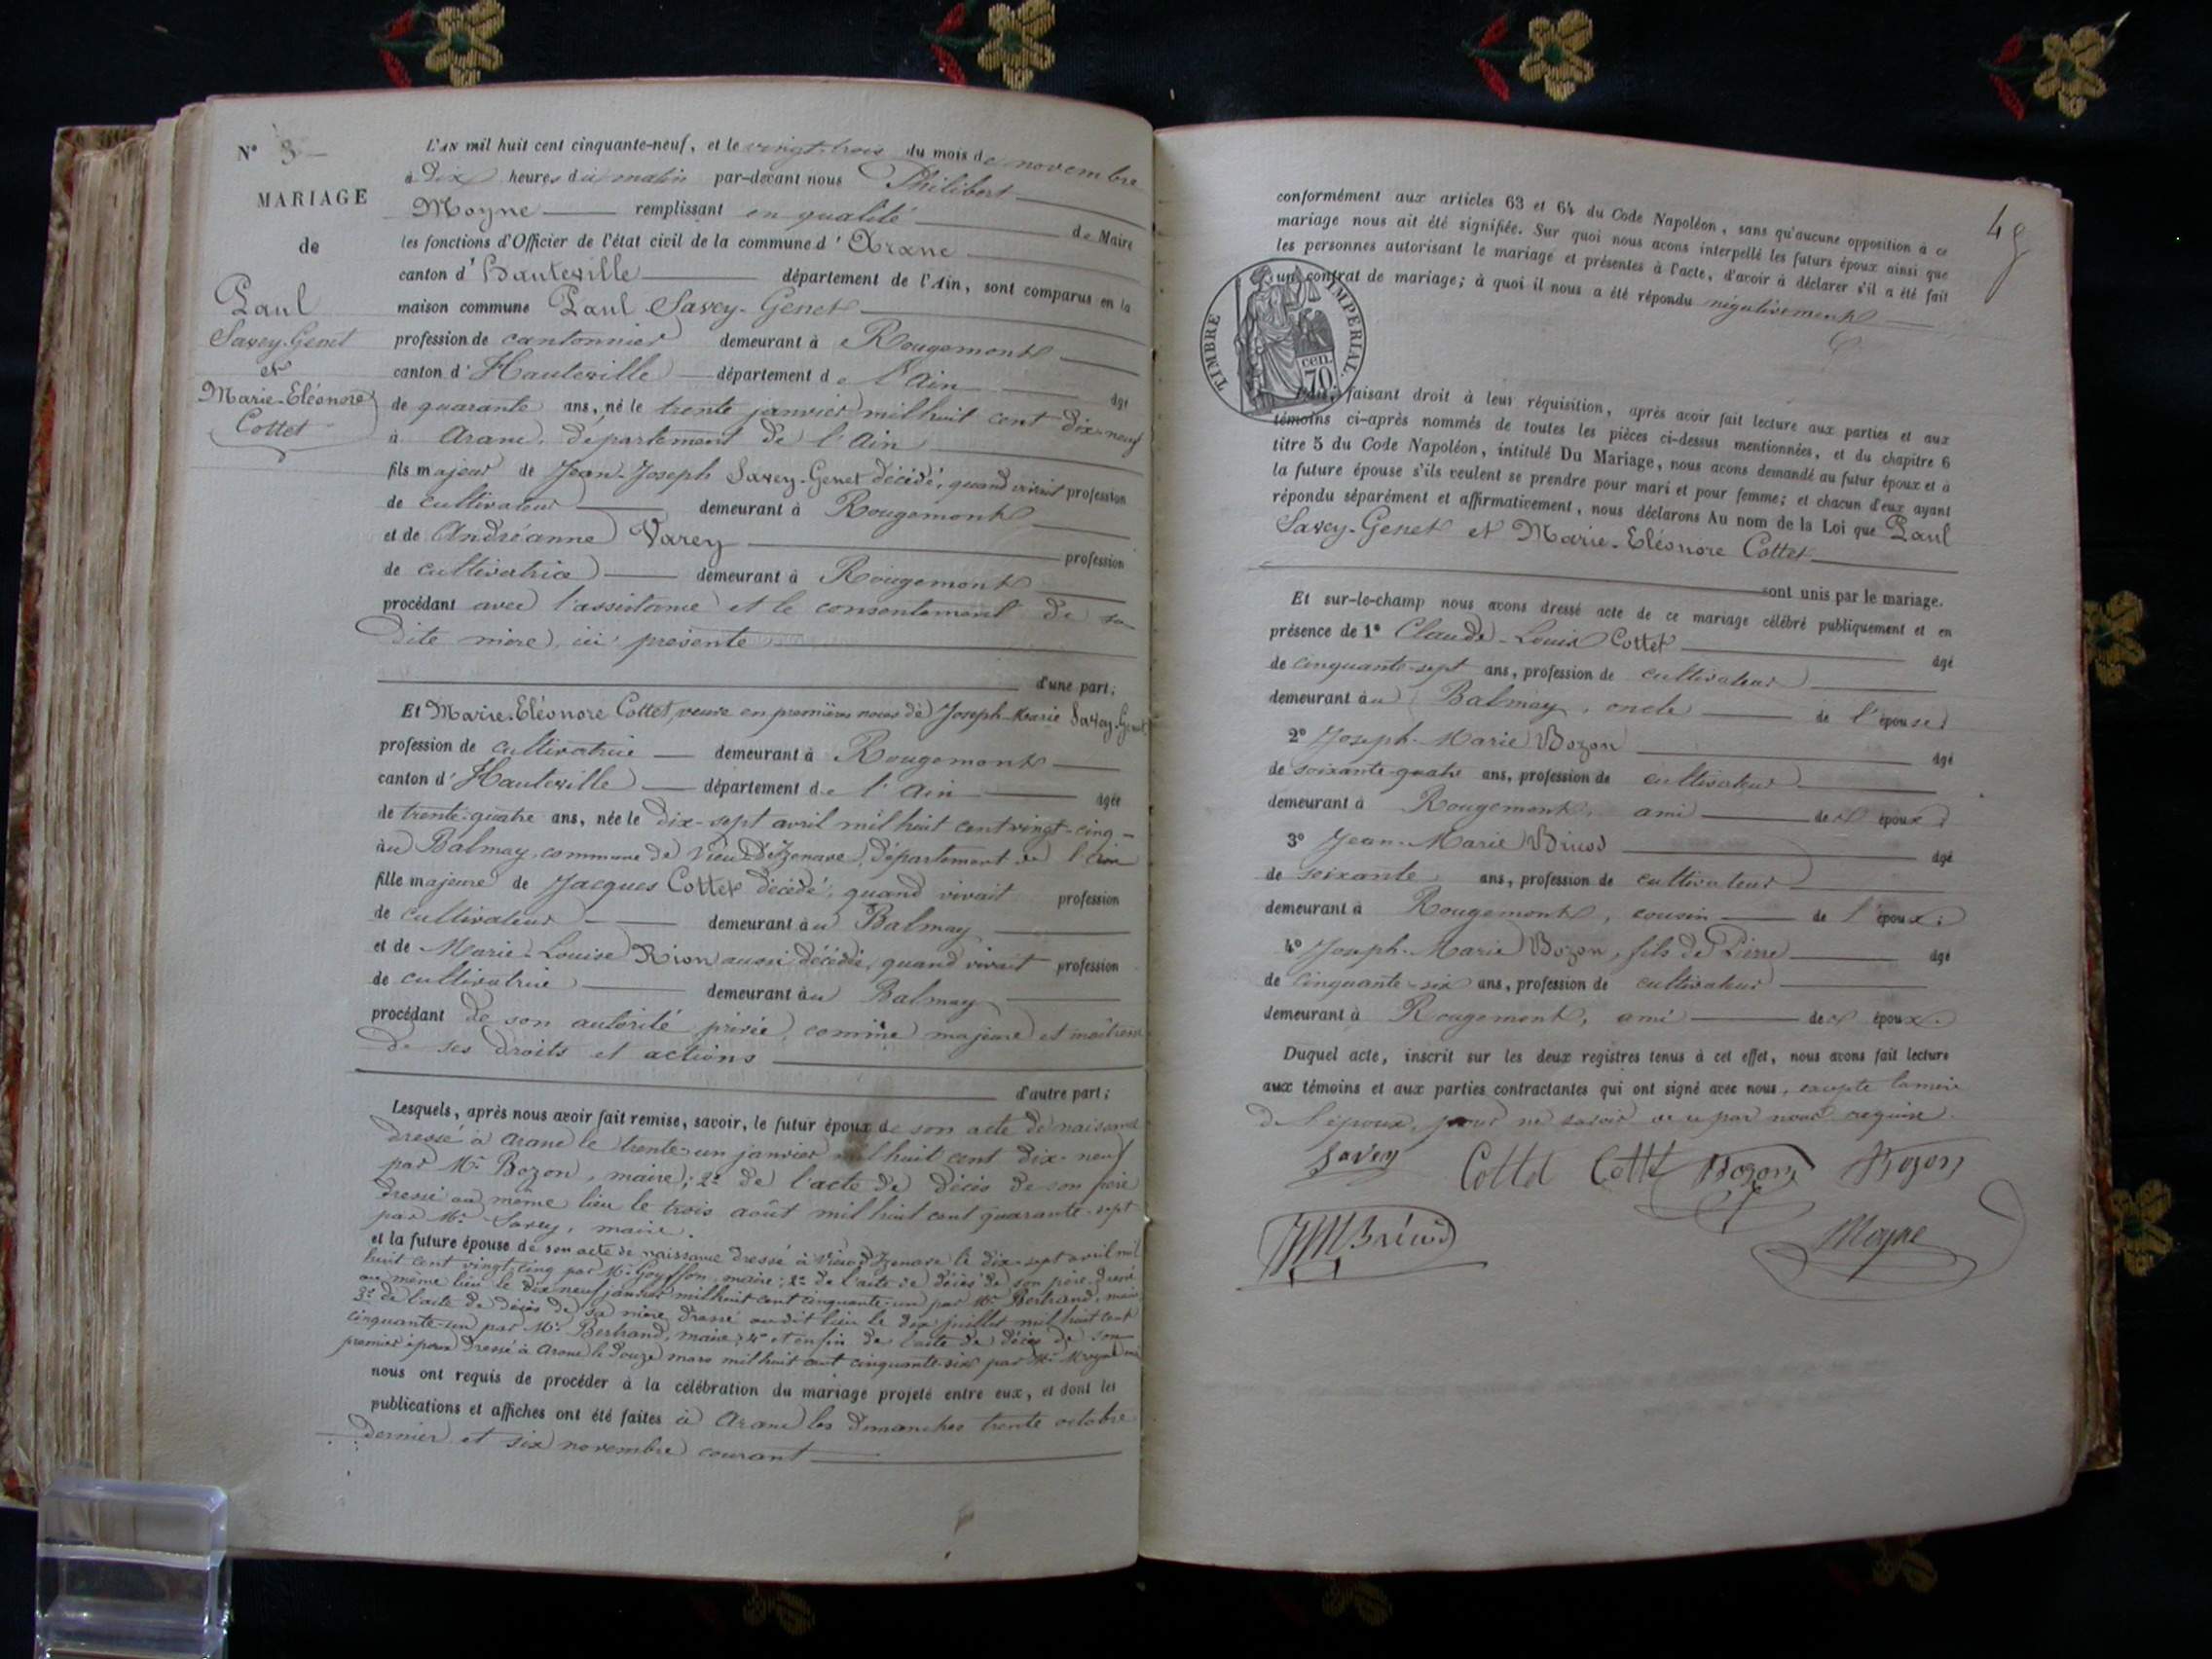 N° 3
MARIAGE
de
Paul
Savey-Genet
et
Marie-Eléonore
Cottet
L'AN mil huit cent cinquante-neuf, et le vingt-trois du mois de novembre
à Dix heures du matin par-devant nous Philibert
Moyne remplissant en qualité de Maire
les fonctions d'Officier de l'état civil de la commune d'Arane
canton d'Hauteville département de l'Ain, sont comparus en la
maison commune Paul Savey-Genet
profession de cantonnier demeurant à Rougemont
canton d'Hauteville département de l'Ain âgé
de quarante ans, né le trente janvier mil huit cent dix-neuf
à Arane, département de l'Ain
fils majeur de Jean-Joseph Savey-Genet décédé, quand vivait profession
de cultivateur demeurant à Rougemont
et de Andréanne Varey profession
de cultivatrice demeurant à Rougemont
procédant avec l'assistance et le consentement de sa
dite mère, ici présente
d'une part;
Et Marie-Eléonore Cottet, veuve en premières noces de Joseph-Marie Savey-Genet
profession de cultivatrice demeurant à Rougemont
canton d'Hauteville département de l'Ain âgée
de trente-quatre ans, née le dix-sept avril mil huit cent vingt-cinq
au Balmay, commune de Vieu-D'Izenave, département de l'Ain
fille majeure de Jacques Cottet décédé, quand vivait profession
de cultivateur demeurant au Balmay
et de Marie-Louise Rion aussi décédée, quand vivait profession
de cultivatrice demeurant au Balmay
procédant de son autorité privée, comme majeure et maîtresse
de ses droits et actions
d'autre part;
Lesquels, après nous avoir fait remise, savoir, le futur époux de son acte de naissance
dressé à Arane le trente-un janvier mil huit cent dix-neuf
par Mr Bozon, maire; 2° de l'acte de décès de son père
dressé au même lieu le trois août mil huit cent quarante-sept
par Mr Savey, maire.
et la future épouse de son acte de naissance dressé à Vieu-d'Izenave le dix-sept avril mil
huit cent vingt-cinq par Mr Goyffon, maire; 2° de l'acte de décès de son père dressé
au même lieu le dix-neuf janvier mil huit cent cinquante-un par Mr Bertrand, maire
3° de l'acte de décès de sa mère dressé audit lieu le dix juillet mil huit cent
cinquante-un par Mr Bertrand, maire; 4° et enfin de l'acte de décès de son
premier époux dressé à Arane le douze mars mil huit cent cinquante-six par Mr Moyne
nous ont requis de procéder à la célébration du mariage projeté entre eux, et dont les
publications et affiches ont été faites à Arane les dimanches trente octobre
dernier et six novembre courant
conformément aux articles 63 et 64 du Code Napoléon, sans qu'aucune opposition à ce
mariage nous ait été signifiée. Sur quoi nous avons interpellé les futurs époux ainsi que
les personnes autorisant le mariage et présentes à l'acte, d'avoir à déclarer s'il a été fait
un contrat de mariage; à quoi il nous a été répondu négativement
TIMBRE IMPERIAL.
cen.
70
faisant droit à leur réquisition, après avoir fait lecture aux parties et aux
témoins ci-après nommés de toutes les pièces ci-dessus mentionnées, et du chapitre 6
titre 5 du Code Napoléon, intitulé Du Mariage, nous avons demandé au futur époux et à
la future épouse s'ils veulent se prendre pour mari et pour femme; et chacun d'eux ayant
répondu séparément et affirmativement, nous déclarons Au nom de la Loi que Paul
Savey-Genet et Marie-Eléonore Cottet
sont unis par le mariage.
Et sur-le-champ nous avons dressé acte de ce mariage célébré publiquement et en
présence de 1° Claude-Louis Cottet âgé
de cinquante-sept ans, profession de cultivateur
demeurant au Balmay, oncle de l'épouse;
2° Joseph-Marie Bozon âgé
de soixante-quatre ans, profession de cultivateur
demeurant à Rougemont, ami de l'époux;
3° Jean-Marie Briod âgé
de soixante ans, profession de cultivateur
demeurant à Rougemont, cousin de l'époux;
4° Joseph-Marie Bozon, fils de Pierre âgé
de cinquante-six ans, profession de cultivateur
demeurant à Rougemont, ami de l'époux.
Duquel acte, inscrit sur les deux registres tenus à cet effet, nous avons fait lecture
aux témoins et aux parties contractantes qui ont signé avec nous, excepté la mère
de l'époux, pour ne savoir de ce par nous requise.
Savey Cottet Cottet Bozon Bozon
JM Briod Moyne